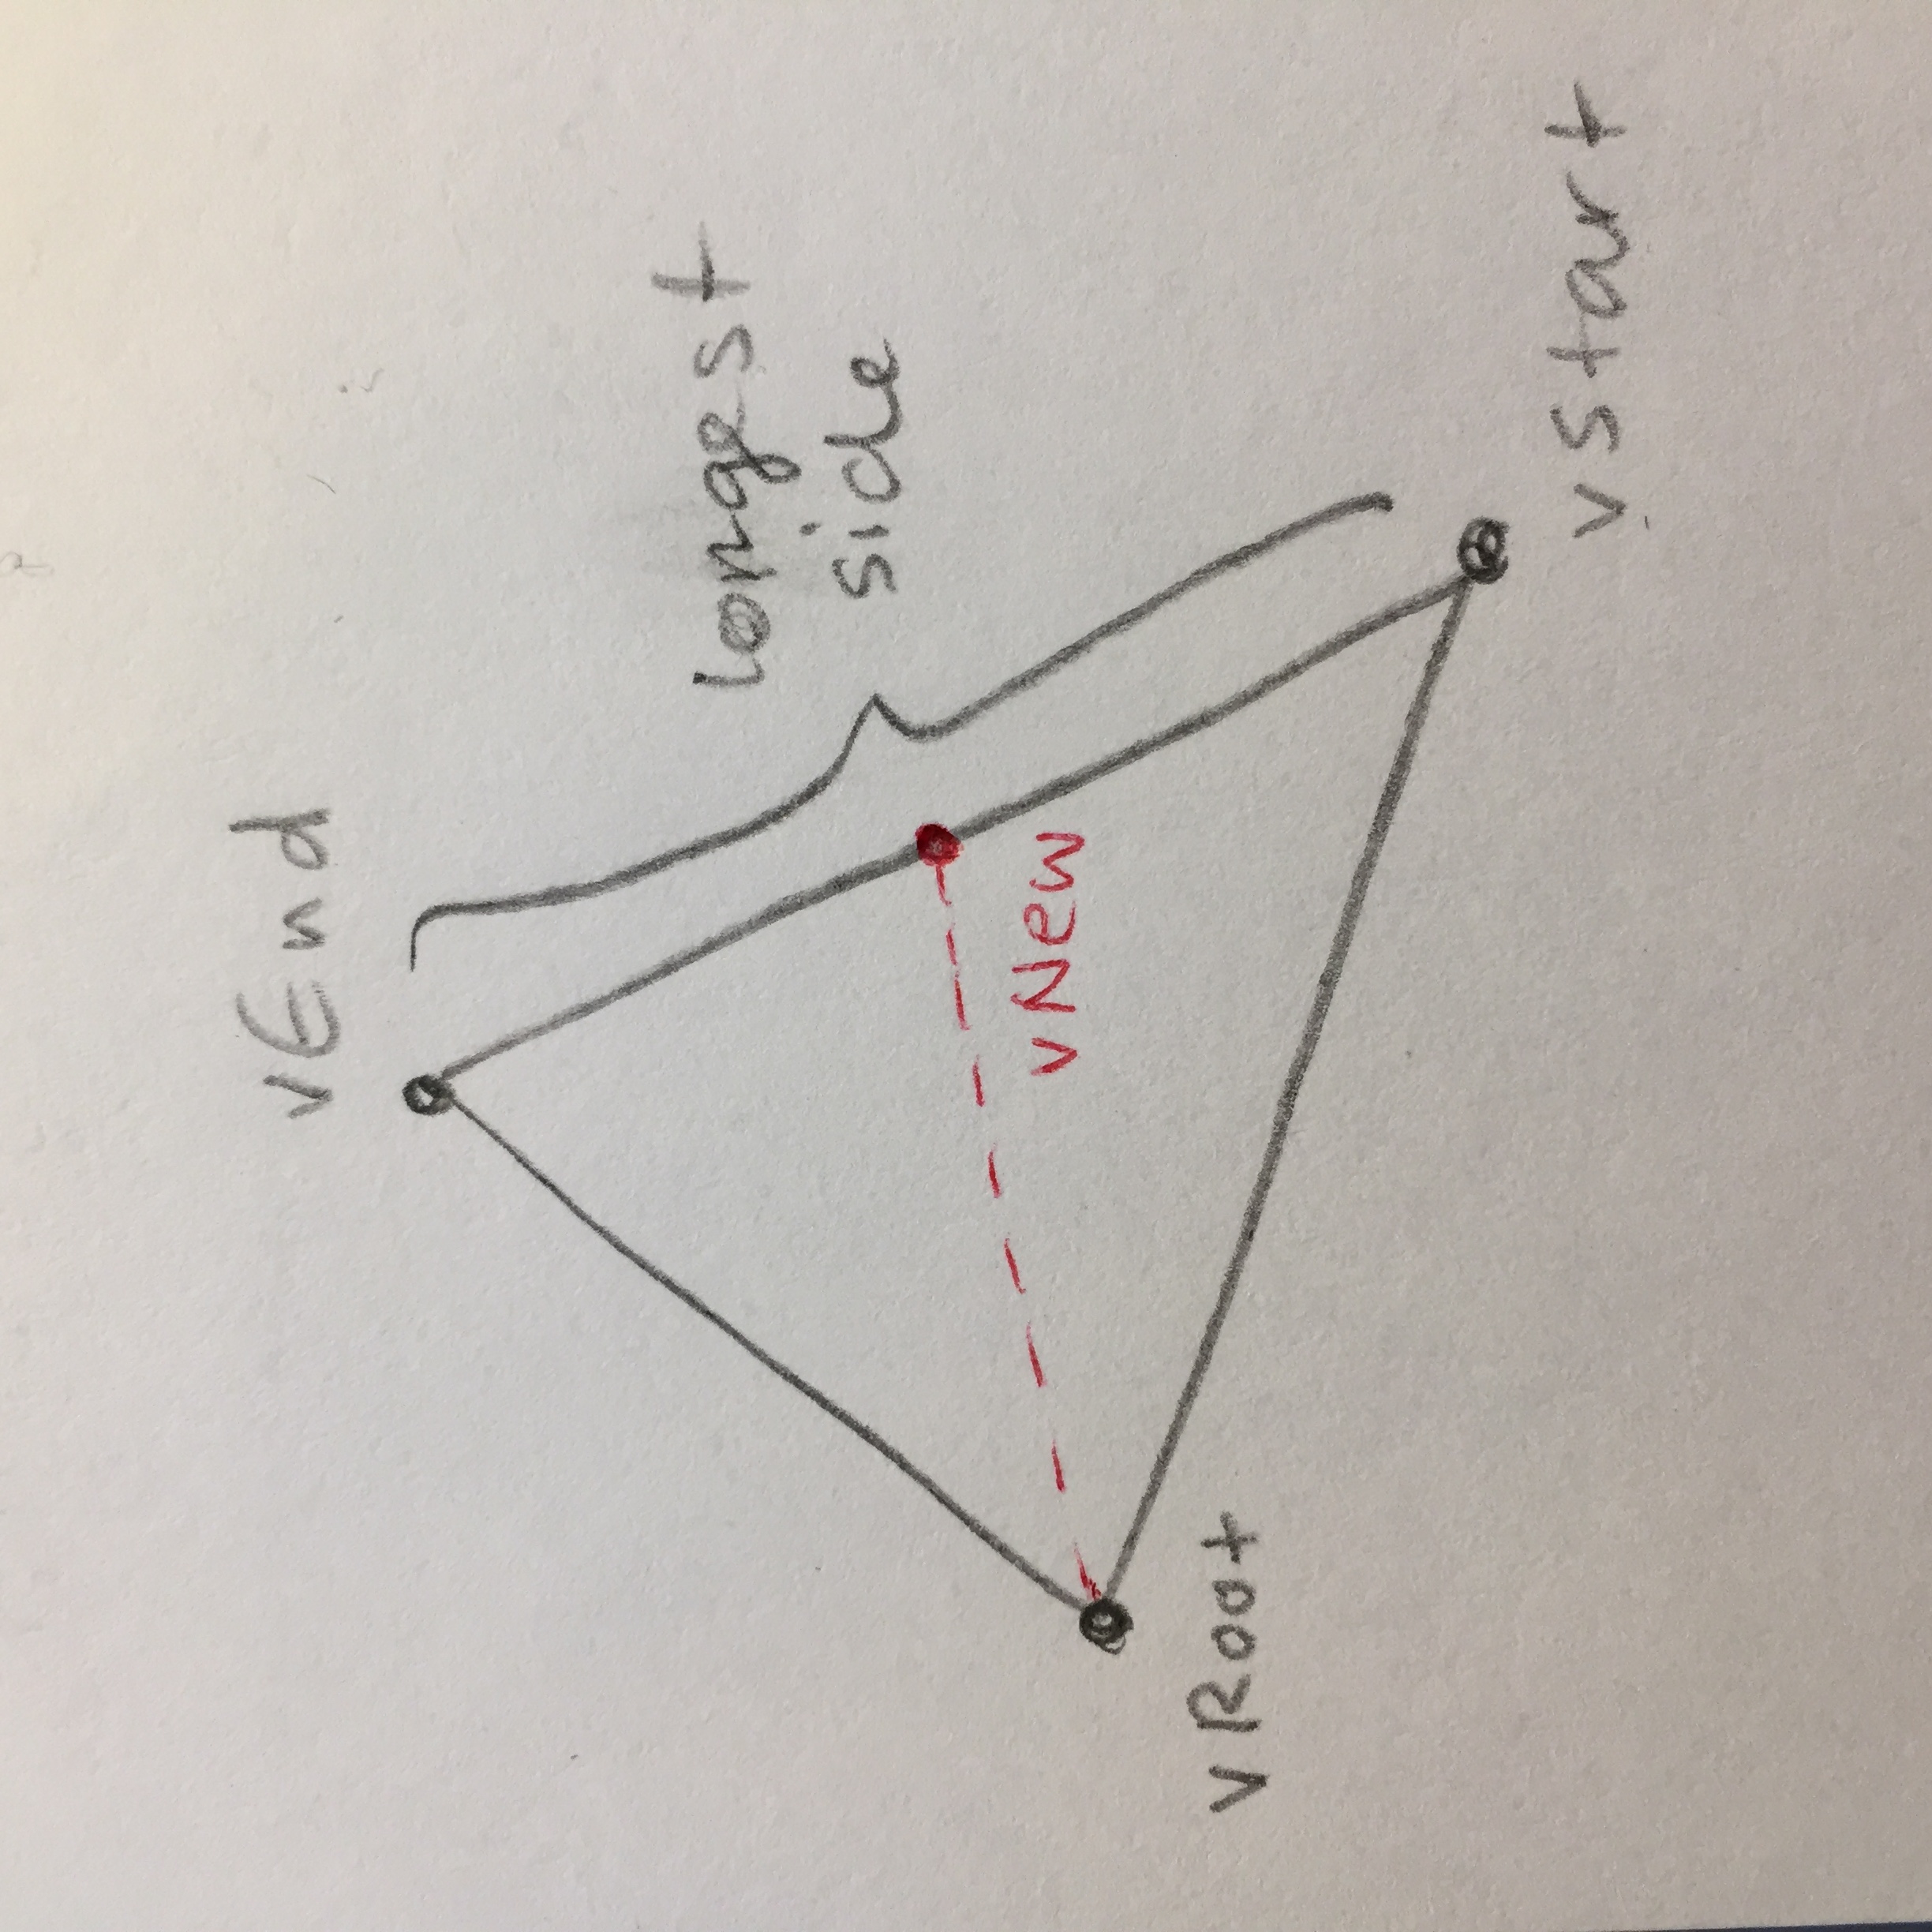 vEnd
longest
side
vNew
vRoot
vStart